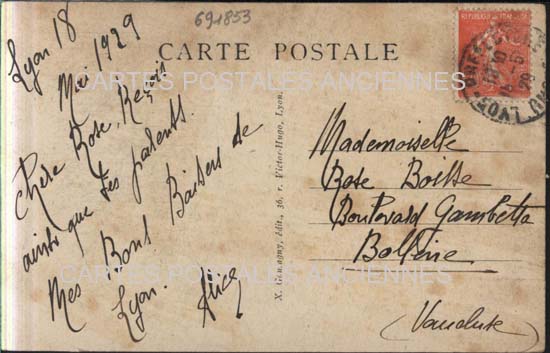 691853
CARTE POSTALE
Lyon 18
Mai 1929
Chère Rose, Reçois
ainsi que tes parents
Mes Bons Baisers de
Lyon.
Alice
X. édit., 36, r. Victor-Hugo, Lyon.
Mademoiselle
Rose Boisse
Boulevard Gambetta
Bollène
(Vaucluse)
CARTES POSTALES ANCIENNES
CARTES POSTALES ANCIENNES